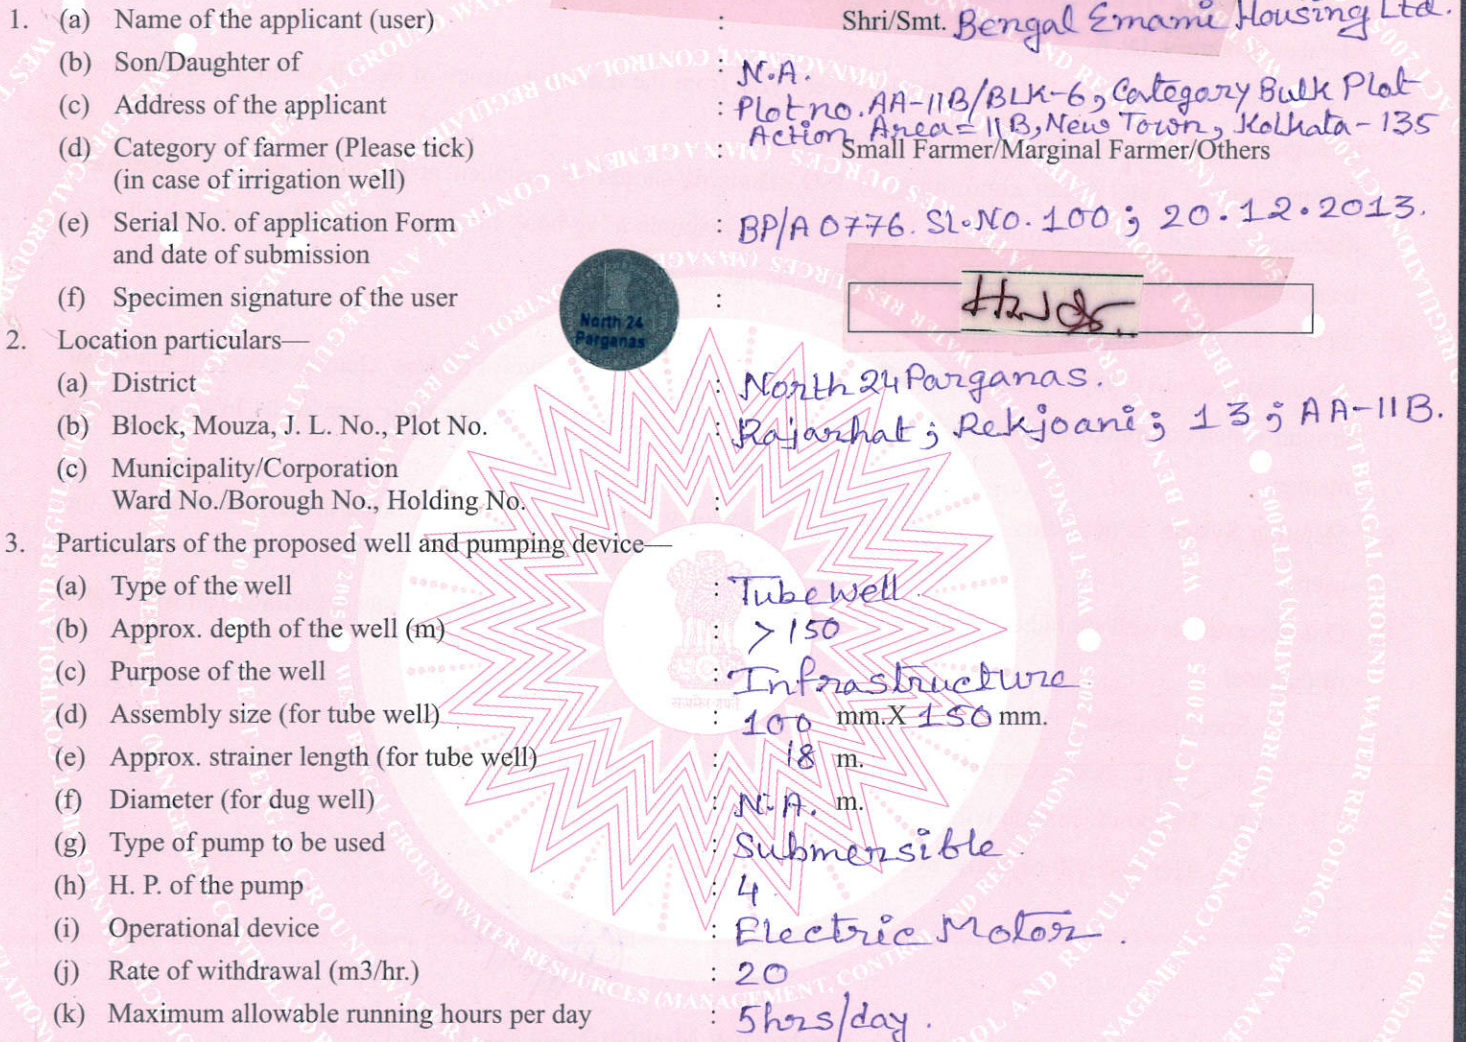 1. (a) Name of the applicant (user) : Shri/Smt. Bengal Emami Housing Ltd.
(b) Son/Daughter of : N.A.
(c) Address of the applicant : Plot no. AA-11B/BLK-6, Category Bulk Plot
Action Area = 11B, New Town, Kolkata - 135
(d) Category of farmer (Please tick) : Small Farmer/Marginal Farmer/Others
(in case of irrigation well)
(e) Serial No. of application Form : BP/A 0776. Sl.NO. 100 ; 20.12.2013.
and date of submission
(f) Specimen signature of the user :
North 24
Parganas
2. Location particulars—
(a) District : North 24 Parganas.
(b) Block, Mouza, J. L. No., Plot No. : Rajarhat ; Rekjoani ; 13 ; AA-11B.
(c) Municipality/Corporation
Ward No./Borough No., Holding No. :
3. Particulars of the proposed well and pumping device—
(a) Type of the well : Tube well.
(b) Approx. depth of the well (m) : >150
(c) Purpose of the well : Infrastructure
(d) Assembly size (for tube well) : 100 mm.X 150 mm.
(e) Approx. strainer length (for tube well) : 18 m.
(f) Diameter (for dug well) : N.A. m.
(g) Type of pump to be used : Submersible.
(h) H. P. of the pump : 4
(i) Operational device : Electric Motor.
(j) Rate of withdrawal (m3/hr.) : 20
(k) Maximum allowable running hours per day : 5hrs/day.